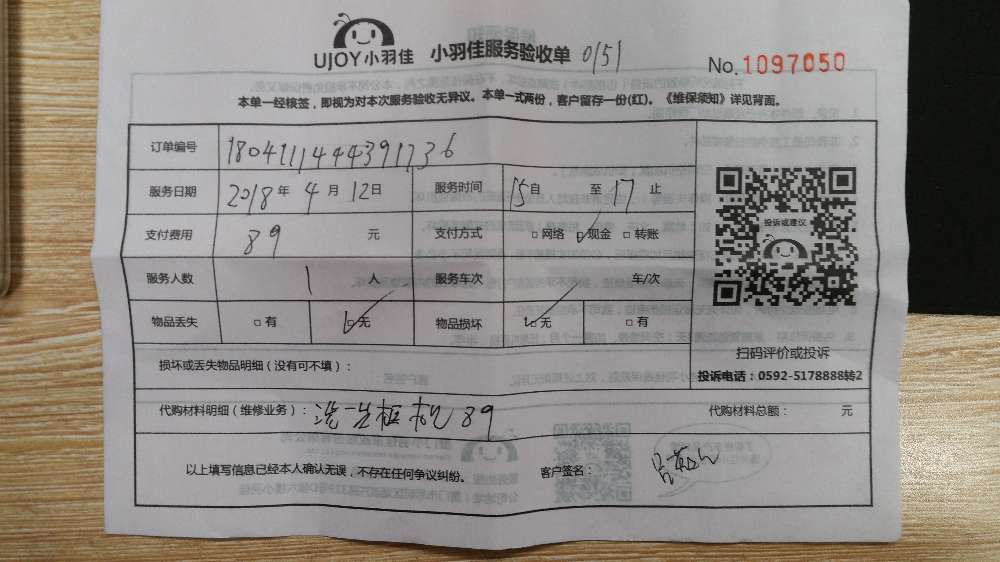 UJOY小羽佳 小羽佳服务验收单 0151
No. 1097050
本单一经核签，即视为对本次服务验收无异议。本单一式两份，客户留存一份(红)。《维保须知》详见背面。
订单编号 1804111444391736
服务日期 2018年 4月 12日 服务时间 15自 至17止
支付费用 89 元 支付方式 □网络 □现金 □转账
投诉或建议
服务人数 1 人 服务车次 车/次
物品丢失 □有 □无 物品损坏 □无 □有
扫码评价或投诉
损坏或丢失物品明细（没有可不填）：
投诉电话：0592-5178888转2
代购材料明细（维修业务）： 洗 柜机 89 代购材料总额： 元
以上填写信息已经本人确认无误，不存在任何争议纠纷。 客户签名：